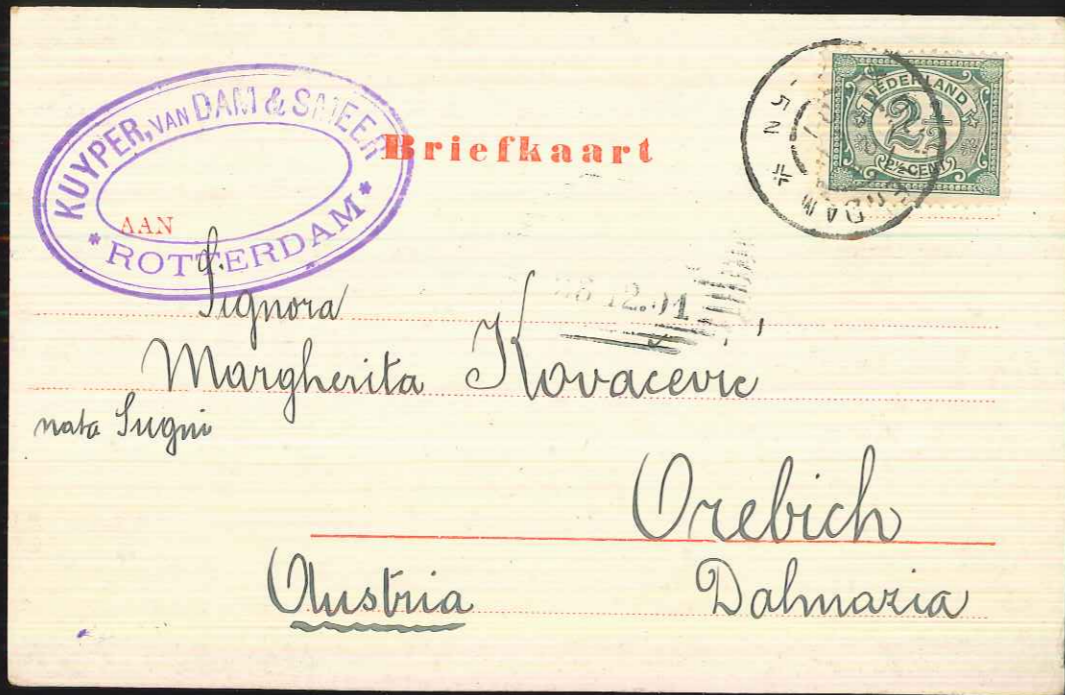 KUYPER, VAN DAM & SMEER
* ROTTERDAM *
Briefkaart
NEDERLAND
2½
2½ CENT
5 N
DAM
AAN
12.01
Signora
Margherita Kovacevic
nata
Orebich
Austria Dalmazia